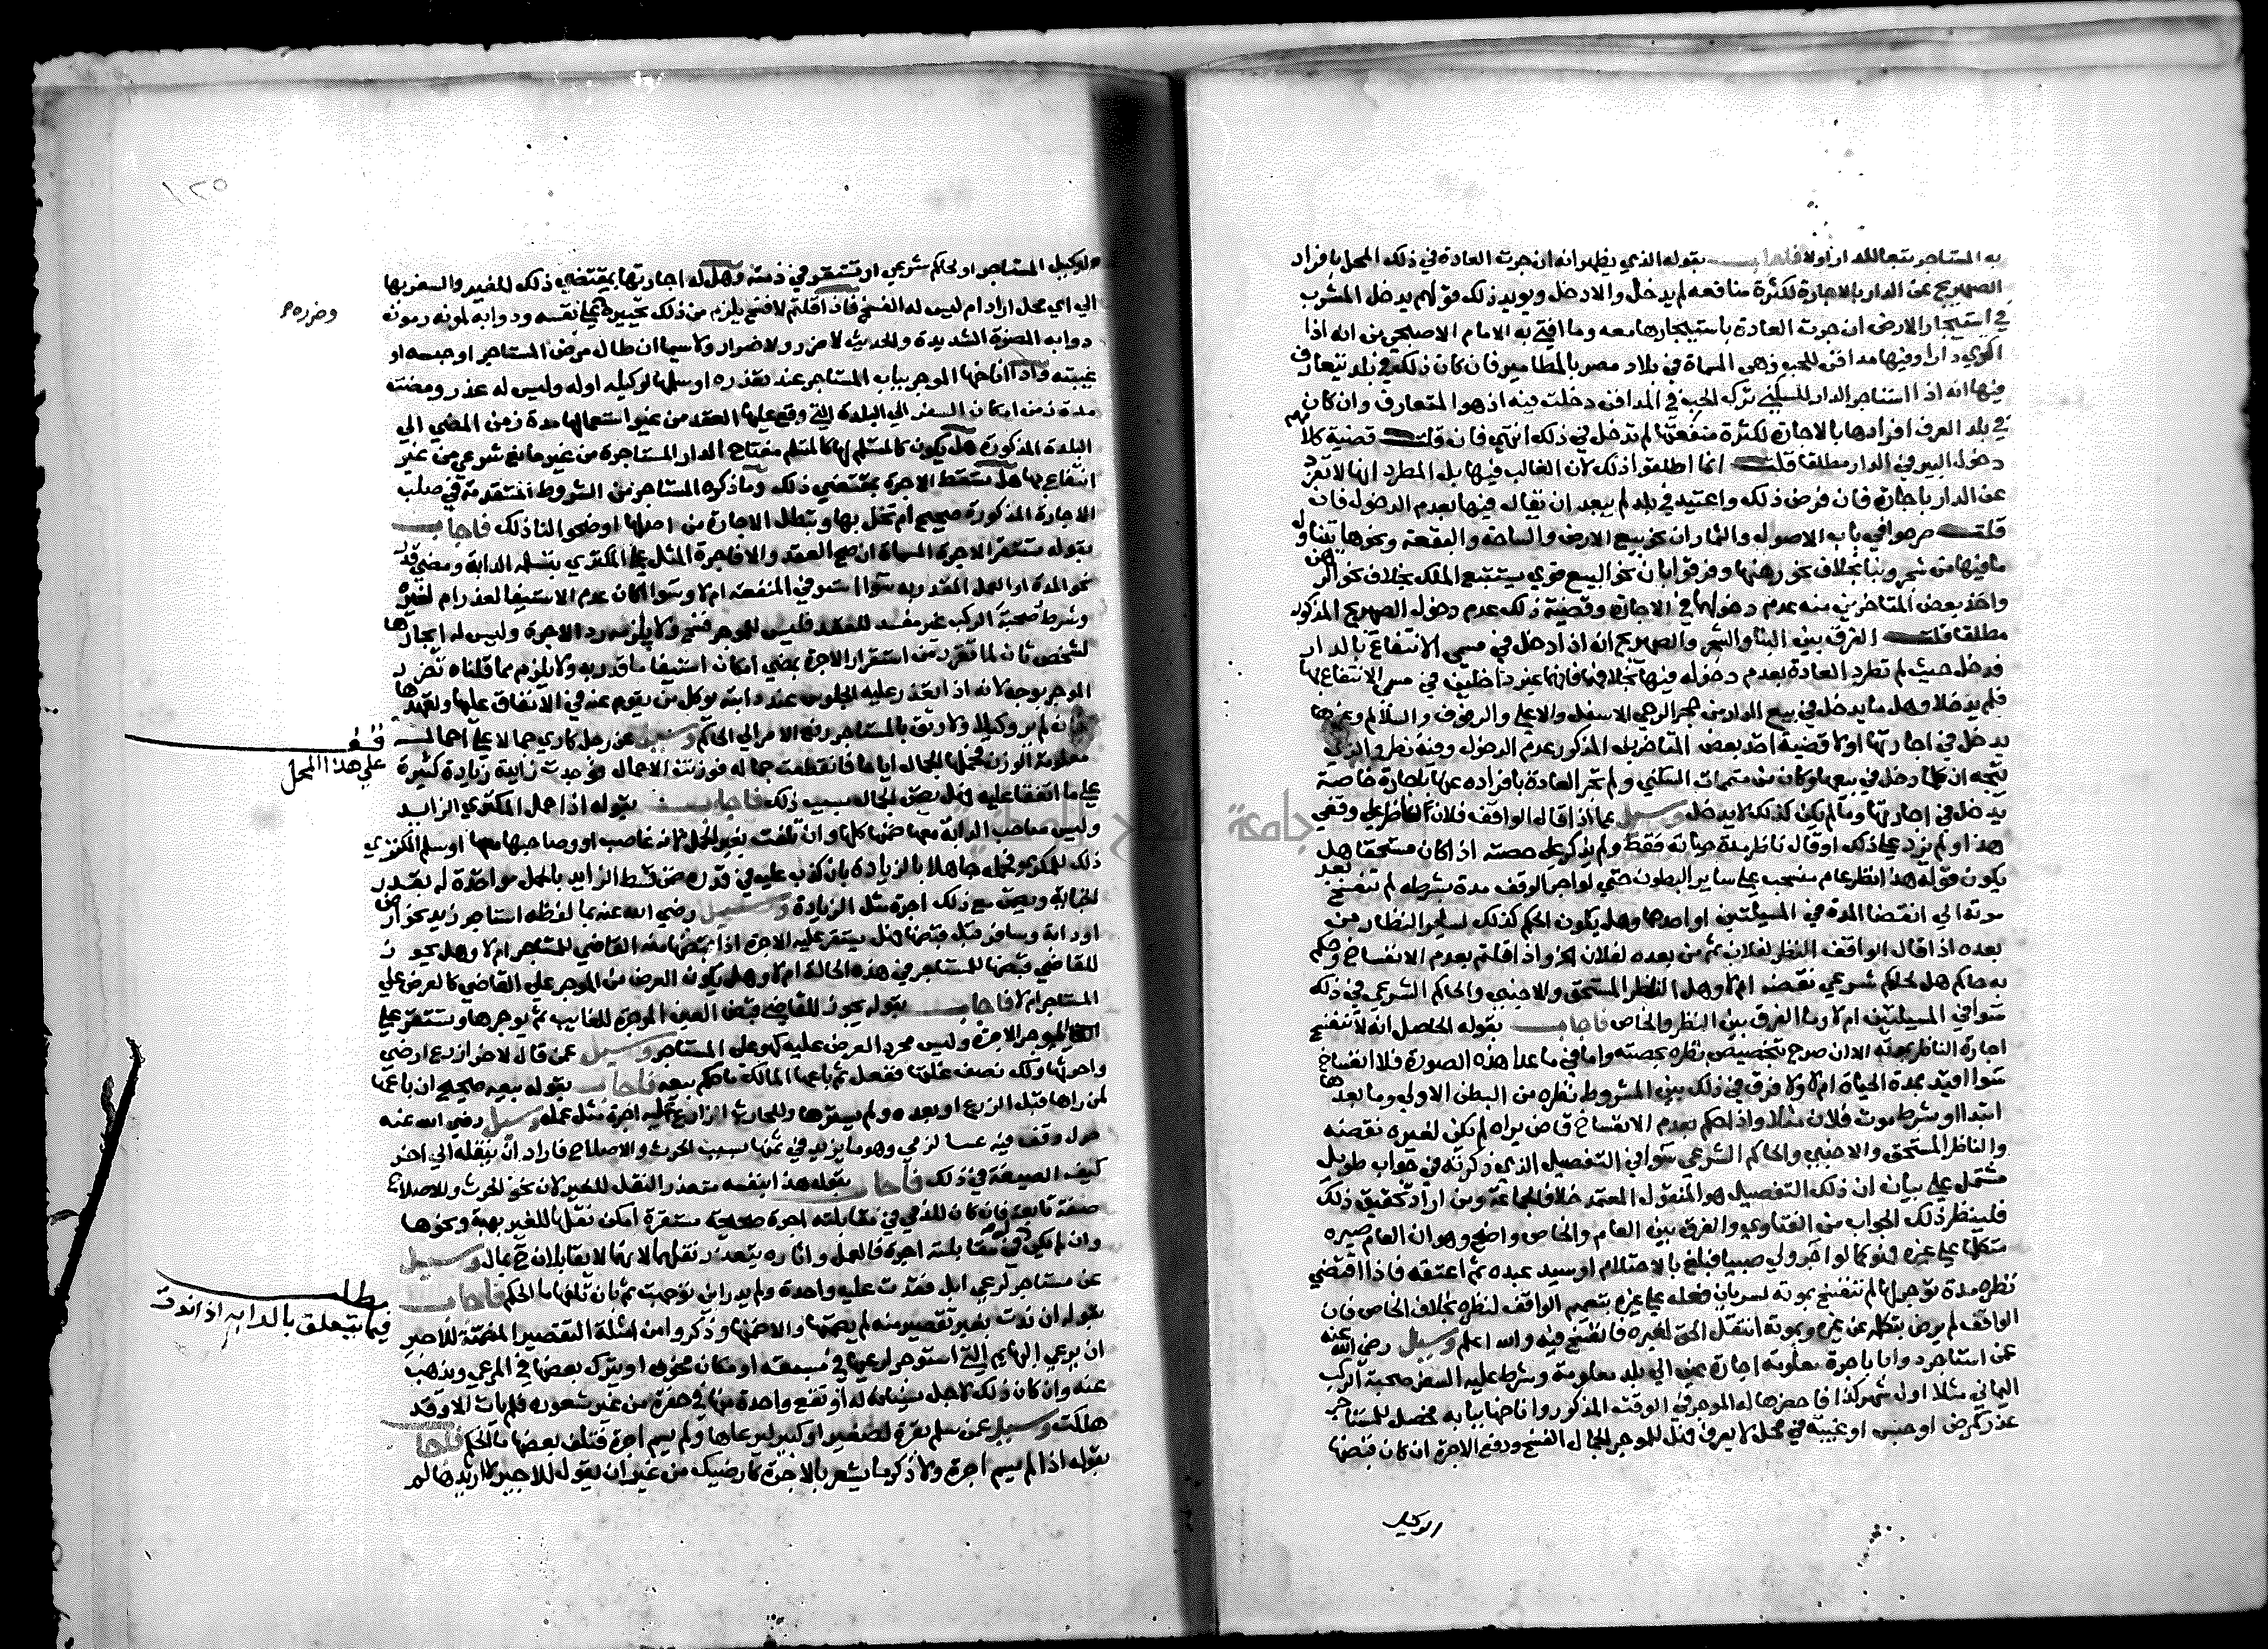 به المستاجر تبعا للدار اولا فاجاب بقوله الذي يظهر انه ان جرت العادة في ذلك المحل بافراد
الصهريج عن الدار بالاجارة لكثرة منافعه لم يدخل والا دخل ويويد ذلك قولهم يدخل المشرب
في استيجار الارض ان جرت العادة باستيجارها معه وما افتى به الامام الاصبحي من انه اذا
اكرى دارا وفيها مدافن للحب وهي المسماة في بلاد مصر بالمطامير فان كان ذلك في بلد يتعارف
فيها انه اذا استاجر الدار للسكنى ترك الحب في المدافن دخلت فيه اذ هو المتعارف وان كان
في بلد العرف افرادها بالاجارة لكثرة منفعتها لم تدخل في ذلك انتهى فان قلت قضية كلامهم
دخول البير في الدار مطلقا قلت انما اطلقوا ذلك لان الغالب فيها بل المطرد انها لا تفرد
عن الدار باجارة فان فرض ذلك واعتيد في بلد لم يبعد ان يقال فيها بعدم الدخول فان
قلت صرحوا في باب الاصول والثمار ان نحو بيع الارض والساحة والبقعة ونحوها يتناول
ما فيها من شجر وبنا بخلاف نحو رهنها وفرقوا بان نحو البيع قوي يستتبع الملك بخلاف نحو الرهن
واخذ بعض المتاخرين منه عدم دخولها في الاجارة وقضية ذلك عدم دخول الصهريج المذكور
مطلقا قلت الفرق بين البنا والشجر والصهريج انه اذا دخل في مسمى الانتفاع بالدار
فدخل حيث لم تطرد العادة بعدم دخوله فيها بخلافهما فانهما غير داخلين في مسمى الانتفاع بها
فلم يدخلا وهل ما يدخل في بيع الدار من حجر الرحى الاسفل والاعلى والرفوف والسلالم ونحوها
يدخل في اجارتها اولا قضية اخذ بعض المتاخرين المذكور عدم الدخول وفيه نظر والذي
يتجه ان كلما دخل في بيعها وكان من متممات السكنى ولم تجر العادة بافراده عنها باجارة خاصة
يدخل في اجارتها وما لم يكن كذلك لا يدخل وسيل عما اذا قال الواقف فلان الناظر على وقفي
هذا ولم يزد على ذلك او قال ناظر مدة حياته فقط ولم يذكر على حصته اذا كان مستحقا هل
يكون قوله هذا نظر عام منسحب على ساير البطون حتى لو اجر الوقف مدة بشرطه لم تنفسخ بعد
موته الى انقضا المدة في المسيلتين او احدها وهل يكون الحكم كذلك لساير النظار من
بعده اذا قال الواقف النظر لفلان ثم من بعده لفلان الخ واذا قلتم بعدم الانفساخ وحكم
به حاكم هل لحاكم شرعي نقضه ام لا وهل الناظر المستحق والاجنبي والحاكم الشرعي في ذلك
سوا في المسيلتين ام لا وما الفرق بين النظر والخاص فاجاب بقوله الحاصل انه لا تنفسخ
اجارة الناظر بموته الا ان صرح بتخصيص نظره بحصته واما في ما عدا هذه الصورة فلا انفساخ
سوا اقيد بمدة الحياة ام لا ولا فرق في ذلك بين المشروط نظره من البطن الاولى وما بعدها
ابتدا او بشرط موت فلان مثلا واذا حكم بعدم الانفساخ قاض يراه لم يكن لغيره نقضه
والناظر المستحق والاجنبي والحاكم الشرعي سوا في التفصيل الذي ذكرته في جواب طويل
مشتمل على بيان ان ذلك التفصيل هو المنقول المعتمد خلافا لجماعة ومن اراد تحقيق ذلك
فلينظر ذلك الجواب من الفتاوي والفرق بين العام والخاص واضح وهو ان العام صيره
متكلما على غيره فهو كما لو اجر ولي صبيا فبلغ بالاحتلام او سيد عبده ثم اعتقه فاذا اقتضي
نظره مدة توجر لها لم تنفسخ بموته لسريان فعله على غيره بتعميم الواقف لنظره بخلاف الخاص فان
الواقف لم يرض بتكلمه عن غيره وبموته انتقل الحق لغيره فانفسخ فيه والله اعلم وسيل رضي الله عنه
عمن استاجر دوابا باجرة معلومة اجارة عين الى بلد معلومة وشرط عليه السفر صحبة الركب
اليماني مثلا اول شهر كذا فاحضرها له الموجر في الوقت المذكور واناخها ببابه فحصل للمستاجر
عذر كمرض او حبس او غيبة في محل لا يعرف فهل للموجر الجمال الفسخ ودفع الاجرة ان كان قبضها
لوكيل
لوكيل المستاجر او لحاكم شرعي او تستقر في ذمته وهل له اجارتها بمقتضى ذلك للغير والسفر بها
الى اي محل اراد ام ليس له الفسخ فاذا قلتم لا فسخ يلزم من ذلك تحييره على نفسه ودوابه لمونه ومونة
وضرره
دوابه المضرة الشديدة والحديث لا ضرر ولا ضرار ولا سيما ان طال مرض المستاجر او حبسه او
غيبته واذا اناخها الموجر بباب المستاجر عند تعذره او سلمها لوكيله او له وليس له عذر ومضت
مدة زمن امكان السفر الى البلدة التي وقع عليها العقد من غير استعمالها مدة زمن المضي الى
البلدة المذكورة هل يكون كالمستلم لها كالمتسلم مفتاح الدار المستاجرة من غير مانع شرعي من غير
انتفاع بها هل تسقط الاجرة بمقتضى ذلك وما ذكره المستاجر من الشروط المتقدمة في صلب
الاجارة المذكورة صحيح ام تخل بها وتبطل الاجارة من اصلها اوضحوا لنا ذلك فاجاب
بقوله تستقر الاجرة المسماة ان صح العقد والا فاجرة المثل على المكتري بتسلمه الدابة ومضى قدر
نحو المدة او العمل المقدر به سوا استوفي المنفعة ام لا وسوا اكان عدم الاستيفا لعذر ام لغيره
وشرط صحبة الركب غير مفسد للعقد فليس للموجر فسخ ولا يلزمه رد الاجرة وليس له ايجارها
لشخص ثان لما تقرر من استقرار الاجرة بمضي امكان استيفا ما قدر به ولا يلزم مما قلناه تضرر
الموجر بوجه لانه اذا تعذر عليه الجلوس عند دابته يوكل من يقوم عنه في الانفاق عليها وتعهدها
فان لم ير وكيلا ولا وثق بالمستاجر رفع الامر الى الحاكم وسيل عن رجل كاري جمالا على احمال
قف
على هذا المحل
معلومة الوزن فحملها الجمال اياما فانقطعت جماله فوزنت الاحمال فوجدت زايدة زيادة كثيرة
على ما اتفقا عليه فهل يضمن الجمال بسبب ذلك فاجاب بقوله اذا حمل المكتري الزايد
وليس صاحب الدابة معها ضمنها كلها وان تلفت بغير الحمل لانه غاصب او وصاحبها معها او سلم المكتري
ذلك للمكري فحمله جاهلا بالزيادة بان كذب عليه في قدره ضمن قسط الزايد بالحمل مواخذة له بقدر
الجناية ويضمن مع ذلك اجرة مثل الزيادة وسيل رضي الله عنه بما لفظه استاجر زيد نحو ارض
او دابة وسافر قبل قبضها هل يستقر عليه الاجرة اذا قبضها منه القاضي للمستاجر ام لا وهل يجوز
للقاضي قبضها للمستاجر في هذه الحالة ام لا وهل يكون العرض من الموجر على القاضي كالعرض على
المستاجر ام لا فاجاب بقوله يجوز للقاضي قبض العين الموجرة للغايب ثم يوجرها وتستقر على
الموجر الاجرة وليس مجرد العرض عليه كهو على المستاجر وسيل عمن قال لاخر ازرع ارضي
واحرثها ولك نصف غلتها ففعل ثم باعها المالك ما حكم بيعه فاجاب بقوله بيعه صحيح ان باعها
لمن راها قبل الزرع او بعده ولم يسترها وللحارث الزارع عليه اجرة مثل عمله وسيل رضي الله عنه
حول وقف فيه عنا لذمي وهو ما يزيد في ثمنها بسبب الحرث والاصلاح فاراد ان ينقله الى اخر
كيف الصيغة في ذلك فاجاب بقوله هذا بنفسه متعذر النقل للغير لان نحو الحرث والاصلاح
صفة تابعة فان كان للذمي في مقابلته اجرة صحيحة مستقرة امكن نقلها للغير بهبة ونحوها
وان لم يكن له في مقابلته اجرة فالعمل واثاره يتعذر نقلهما لانهما لا يقابلان بمال وسيل
عن مستاجر لرعي ابل فقدت عليه واحدة ولم يدر اين توجهت ثم بان تلفها ما الحكم فاجاب
مطلب
فيما يتعلق بالدابه اذا ندت
بقوله ان ندت بغير تقصير منه لم يضمنها والا ضمنها وذكروا من امثلة التقصير المضمنة للاجير
ان يرعى البهايم التي استوجر لرعيها في مسبعة او مكان مخوف او يترك بعضها في المرعى ويذهب
عنه وان كان ذلك لاجل نسيانه له او تقع واحدة منها في حفرة من غير شعوره فلم يات الا وقد
هلكت وسيل عمن سلم بقرة لصغير او كبير ليرعاها ولم يسم اجرة فتلف بعضها ما الحكم فاجاب
بقوله اذا لم يسم اجرة ولا ذكر ما يشعر بالاجرة كارضيك من غير ان يقول للاجير لا اريدها لم
جامعة
١٢٥